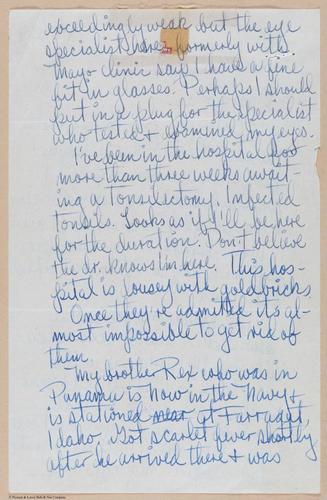 exceedingly weak but the eye
specialist here, formerly with
Mayo clinic say I have a fine
fit in glasses. Perhaps I should
put in a plug for the specialist
who tested & examined my eyes.
I've been in the hospital for
more than three weeks await-
ing a tonsilectomy. Infected
tonsils. Looks as if I'll be here
for the duration. Don't believe
the dr. knows I'm here. This hos-
pital is lousey with goldbricks.
Once they're admitted it's al-
most impossible to get rid of
them.
My brother Rex who was in
Panama is now in the Navy &
is stationed near at Farragut,
Idaho. Got scarlet fever shortly
after he arrived there & was